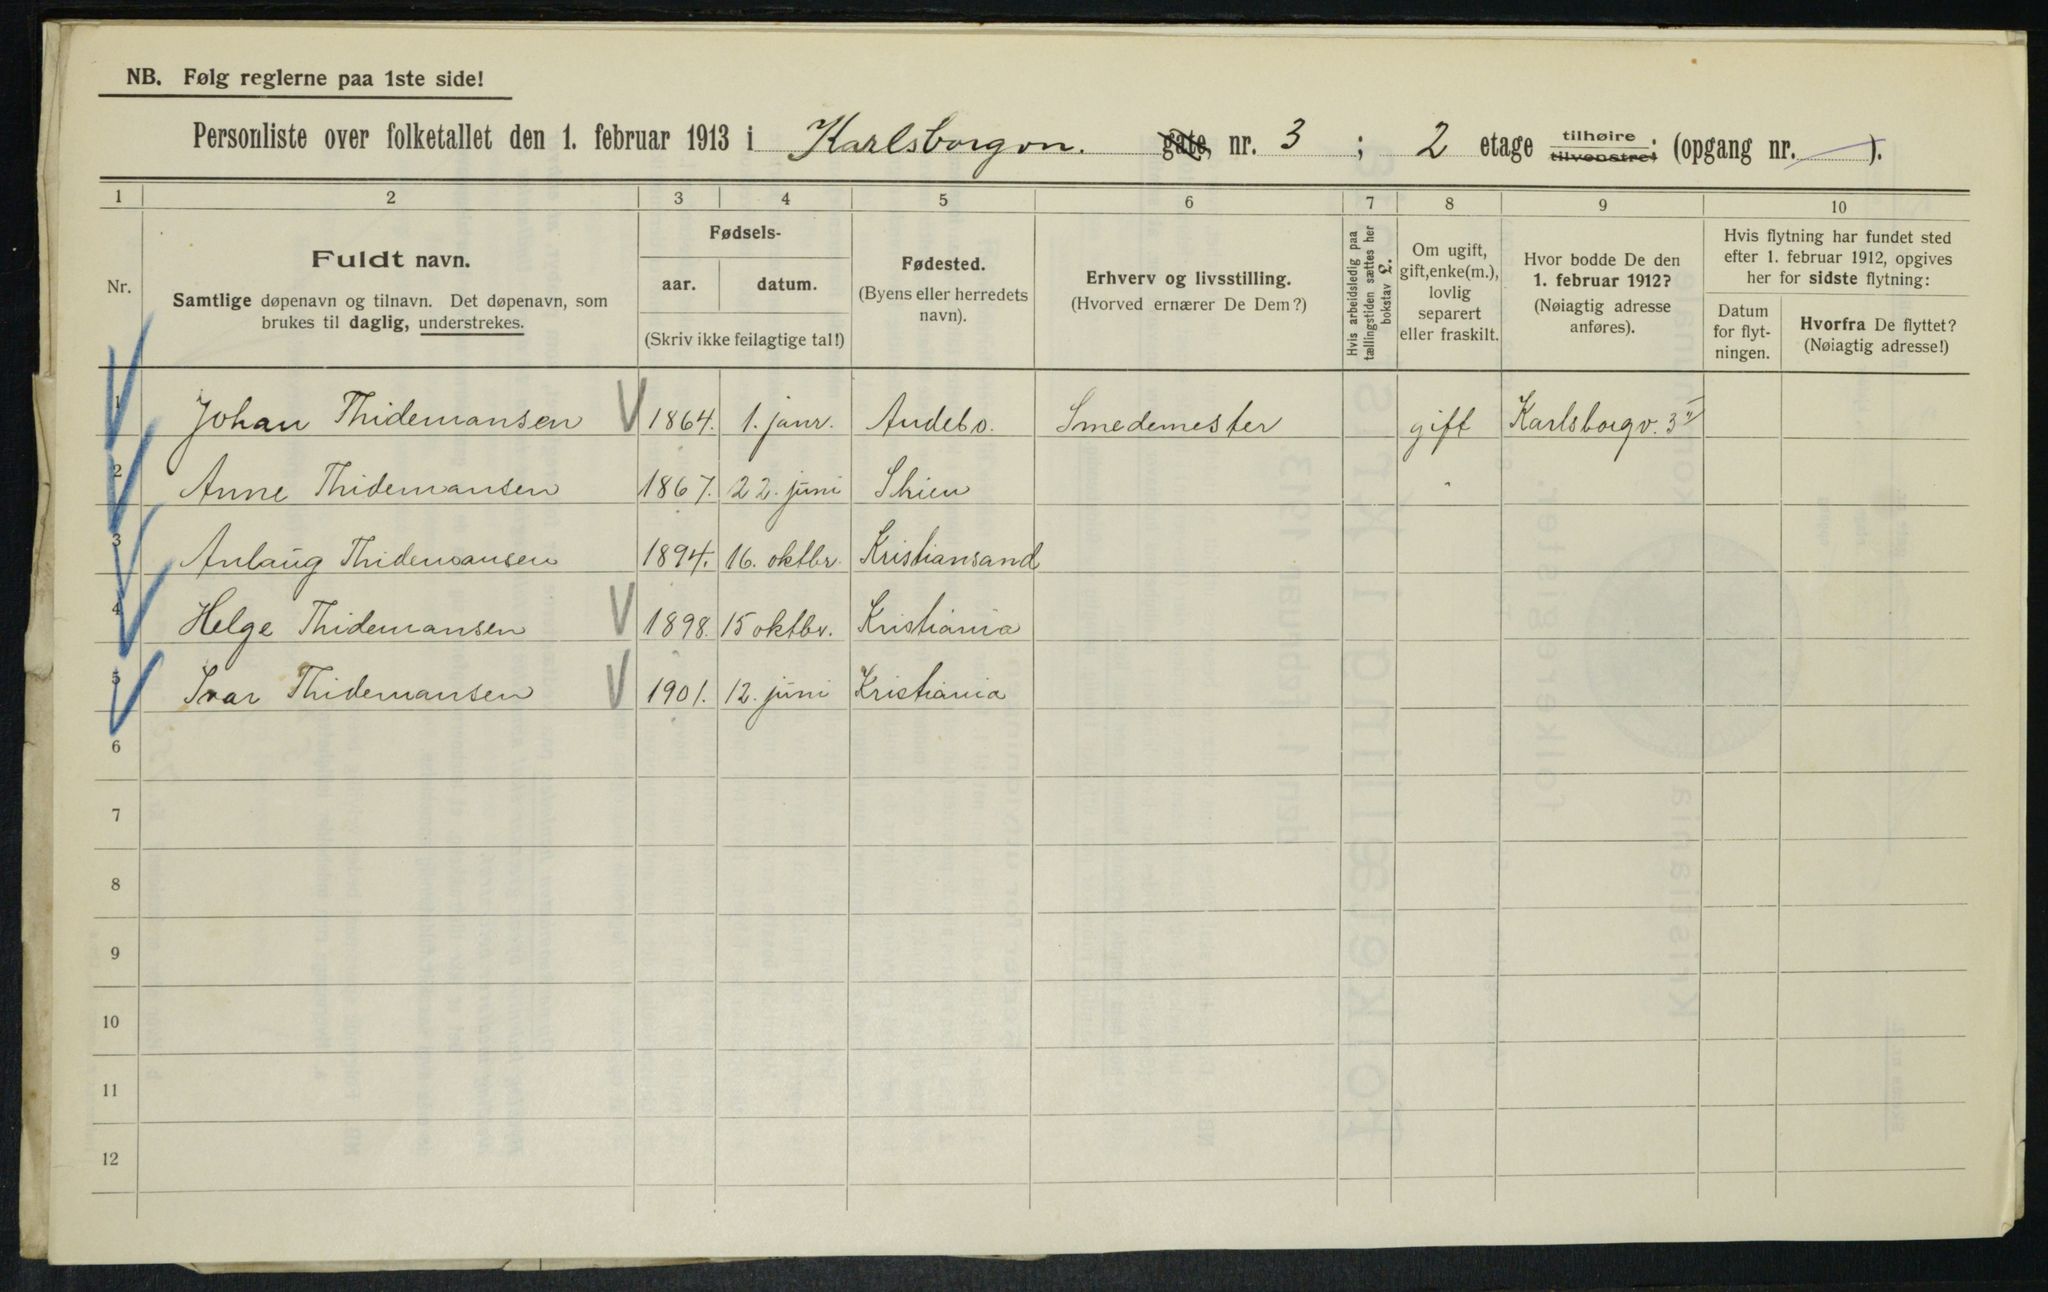 NB. Følg reglerne paa 1ste side!
Personliste over folketallet den 1. februar 1913 i Karlsborgvn. gate, nr. 3 ; 2 etage tilhøire tilvenstre; (opgang nr. ).
1 2 3 4 5 6 7 8 9 10
Nr.
Fuldt navn.
Samtlige døpenavn og tilnavn. Det døpenavn, som
brukes til daglig, understrekes.
Fødsels-
aar. datum.
(Skriv ikke feilagtige tal!)
Fødested.
(Byens eller herredets
navn).
Erhverv og livsstilling.
(Hvorved ernærer De Dem?)
Hvis arbeidsledig paa
tællingstiden sættes her
bokstav L.
Om ugift,
gift, enke(m.),
lovlig
separert
eller fraskilt.
Hvor bodde De den
1. februar 1912?
(Nøiagtig adresse
anføres).
Hvis flytning har fundet sted
efter 1. februar 1912, opgives
her for sidste flytning:
Datum
for flyt-
ningen.
Hvorfra De flyttet?
(Nøiagtig adresse!)
1 Johan Thidemansen 1864. 1. janr. Andebo. Smedemester gift Karlsborgv. 3 II
2 Anne Thidemansen 1867. 22. juni Skien "
3 Anlaug Thidemansen 1894. 16. oktbr. Kristiansand
4 Helge Thidemansen 1898. 15 oktbr. Kristiania
5 Ivar Thidemansen 1901. 12. juni Kristiania
6
7
8
9
10
11
12